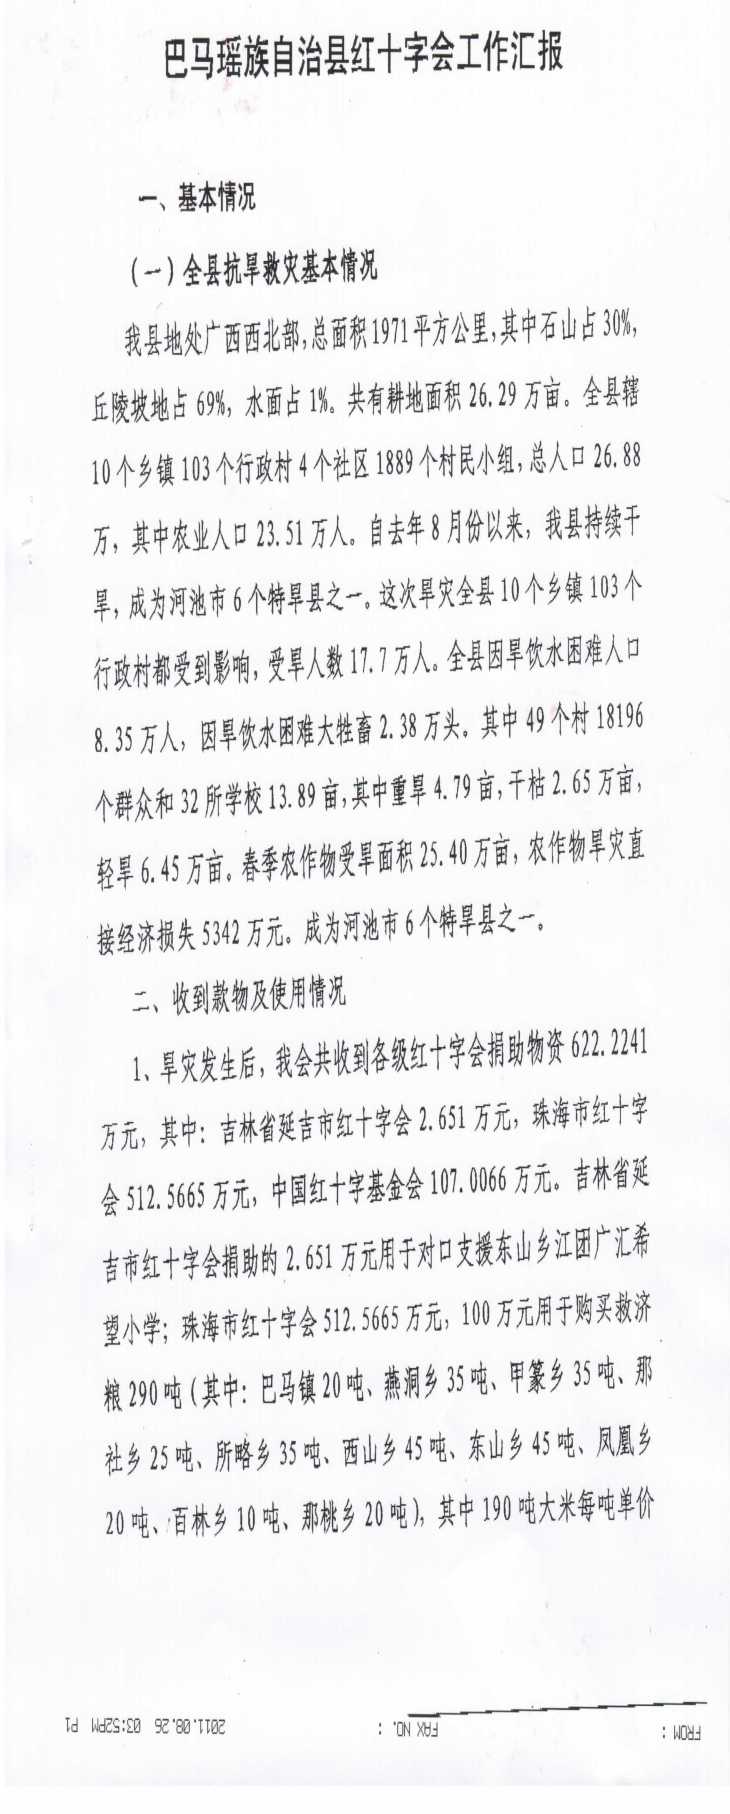 巴马瑶族自治县红十字会工作汇报
一、基本情况
(一)全县抗旱救灾基本情况
我县地处广西西北部,总面积1971平方公里,其中石山占30%,
丘陵坡地占69%,水面占1%。共有耕地面积26.29万亩。全县辖
10个乡镇103个行政村4个社区1889个村民小组,总人口26.88
万,其中农业人口23.51万人。自去年8月份以来,我县持续干
旱,成为河池市6个特旱县之一。这次旱灾全县10个乡镇103个
行政村都受到影响,受旱人数17.7万人。全县因旱饮水困难人口
8.35万人,因旱饮水困难大牲畜2.38万头。其中49个村18196
个群众和32所学校13.89亩,其中重旱4.79亩,干枯2.65万亩,
轻旱6.45万亩。春季农作物受旱面积25.40万亩,农作物旱灾直
接经济损失5342万元。成为河池市6个特旱县之一。
二、收到款物及使用情况
1、旱灾发生后,我会共收到各级红十字会捐助物资622.2241
万元,其中:吉林省延吉市红十字会2.651万元,珠海市红十字
会512.5665万元,中国红十字基金会107.0066万元。吉林省延
吉市红十字会捐助的2.651万元用于对口支援东山乡江团广汇希
望小学;珠海市红十字会512.5665万元,100万元用于购买救济
粮290吨(其中:巴马镇20吨、燕洞乡35吨、甲篆乡35吨、那
社乡25吨、所略乡35吨、西山乡45吨、东山乡45吨、凤凰乡
20吨、百林乡10吨、那桃乡20吨),其中190吨大米每吨单价
FROM : FAX NO. : 2011.08.26 03:52PM P1